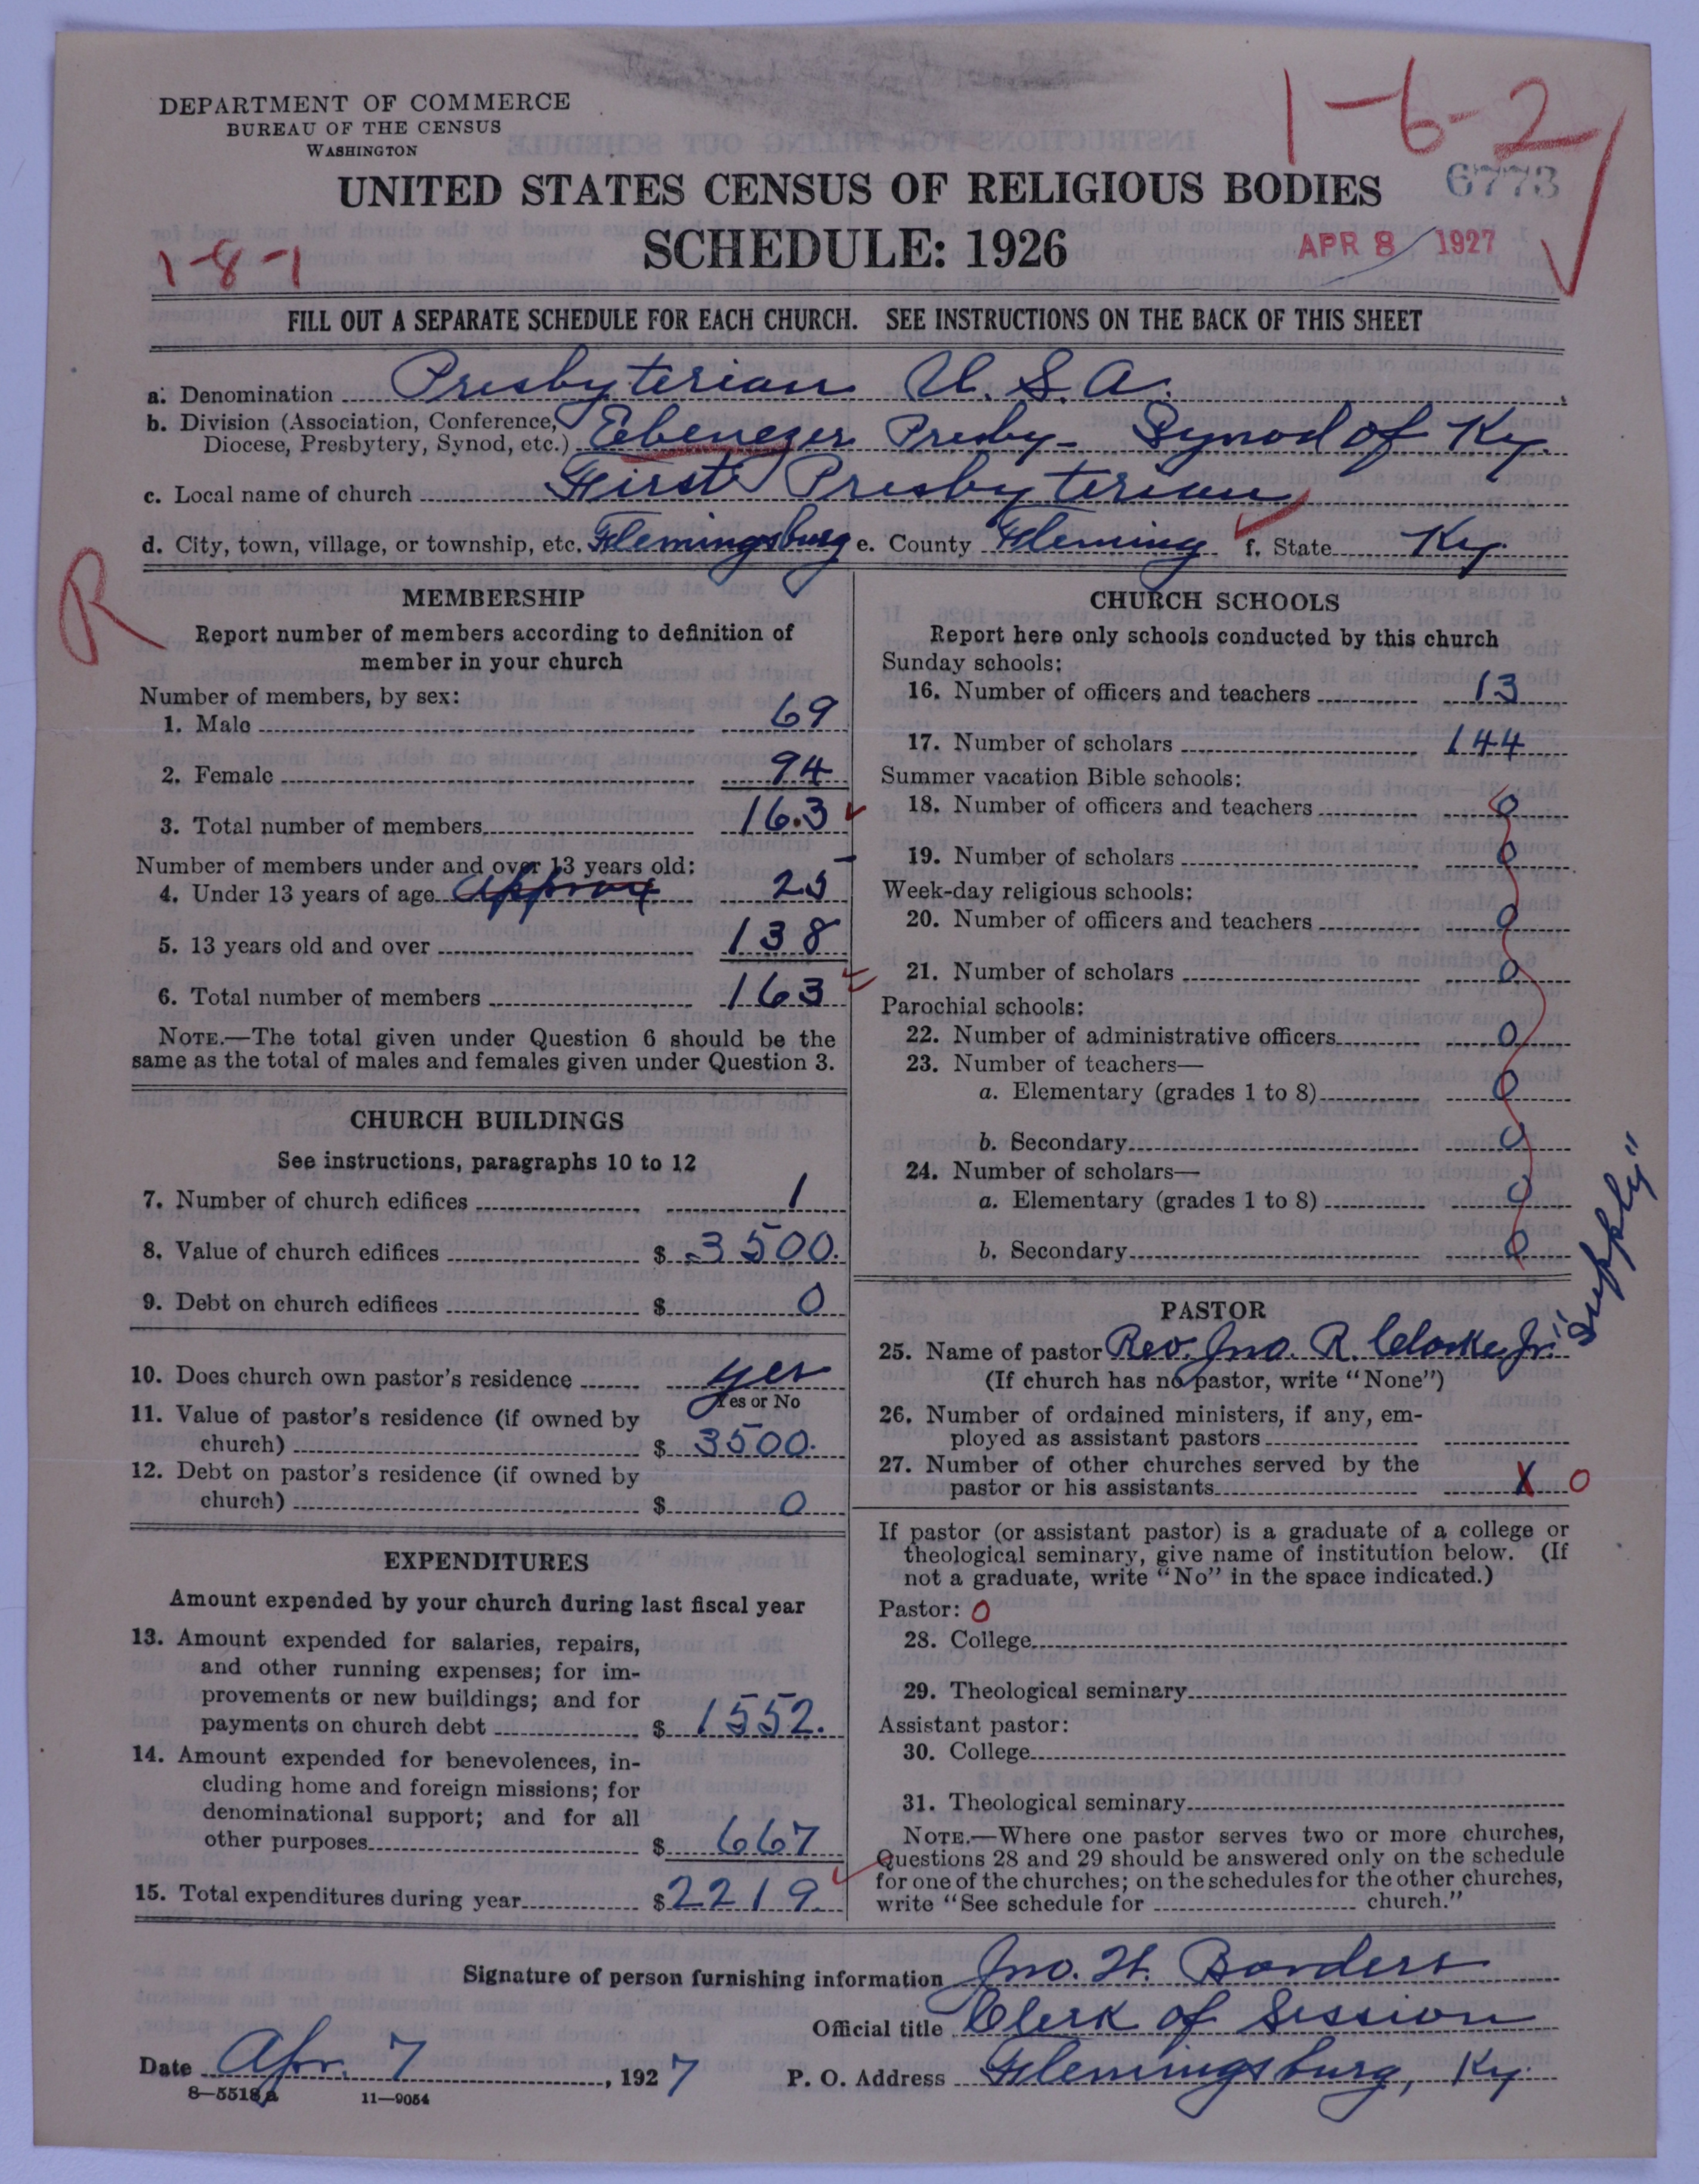 DEPARTMENT OF COMMERCE
BUREAU OF THE CENSUS
WASHINGTON
1-6-2
6773
UNITED STATES CENSUS OF RELIGIOUS BODIES
SCHEDULE: 1926
APR 8 1927
1-8-1
FILL OUT A SEPARATE SCHEDULE FOR EACH CHURCH. SEE INSTRUCTIONS ON THE BACK OF THIS SHEET
a. Denomination Presbyterian U.S.A.
b. Division (Association, Conference,
Diocese, Presbytery, Synod, etc.) Ebenezer Presby- Synod of Ky.
c. Local name of church First Presbyterian
d. City, town, village, or township, etc. Flemingsburg e. County Fleming f. State Ky.
R
MEMBERSHIP
Report number of members according to definition of
member in your church
Number of members, by sex:
1. Male 69
2. Female 94
3. Total number of members 163
Number of members under and over 13 years old:
4. Under 13 years of age approx 25
5. 13 years old and over 138
6. Total number of members 163
NOTE.—The total given under Question 6 should be the
same as the total of males and females given under Question 3.
CHURCH BUILDINGS
See instructions, paragraphs 10 to 12
7. Number of church edifices 1
8. Value of church edifices $ 3500.
9. Debt on church edifices $ 0
10. Does church own pastor's residence yes
Yes or No
11. Value of pastor's residence (if owned by
church) $ 3500.
12. Debt on pastor's residence (if owned by
church) $ 0
EXPENDITURES
Amount expended by your church during last fiscal year
13. Amount expended for salaries, repairs,
and other running expenses; for im-
provements or new buildings; and for
payments on church debt $ 1552.
14. Amount expended for benevolences, in-
cluding home and foreign missions; for
denominational support; and for all
other purposes $ 667
15. Total expenditures during year $ 2219.
CHURCH SCHOOLS
Report here only schools conducted by this church
Sunday schools:
16. Number of officers and teachers 13
17. Number of scholars 144
Summer vacation Bible schools:
18. Number of officers and teachers 0
19. Number of scholars 0
Week-day religious schools:
20. Number of officers and teachers 0
21. Number of scholars 0
Parochial schools:
22. Number of administrative officers 0
23. Number of teachers—
a. Elementary (grades 1 to 8) 0
b. Secondary 0
24. Number of scholars—
a. Elementary (grades 1 to 8) 0
b. Secondary 0
PASTOR
25. Name of pastor Rev. Jno. R. Clarke, Jr. "Supply"
(If church has no pastor, write "None")
26. Number of ordained ministers, if any, em-
ployed as assistant pastors
27. Number of other churches served by the
pastor or his assistants X 0
If pastor (or assistant pastor) is a graduate of a college or
theological seminary, give name of institution below. (If
not a graduate, write "No" in the space indicated.)
Pastor: 0
28. College
29. Theological seminary
Assistant pastor:
30. College
31. Theological seminary
NOTE.—Where one pastor serves two or more churches,
Questions 28 and 29 should be answered only on the schedule
for one of the churches; on the schedules for the other churches,
write "See schedule for church."
Signature of person furnishing information Jno. H. Borders
Official title Clerk of Session
Date Apr. 7, 1927 P. O. Address Flemingsburg, Ky.
8—5518a 11—9054